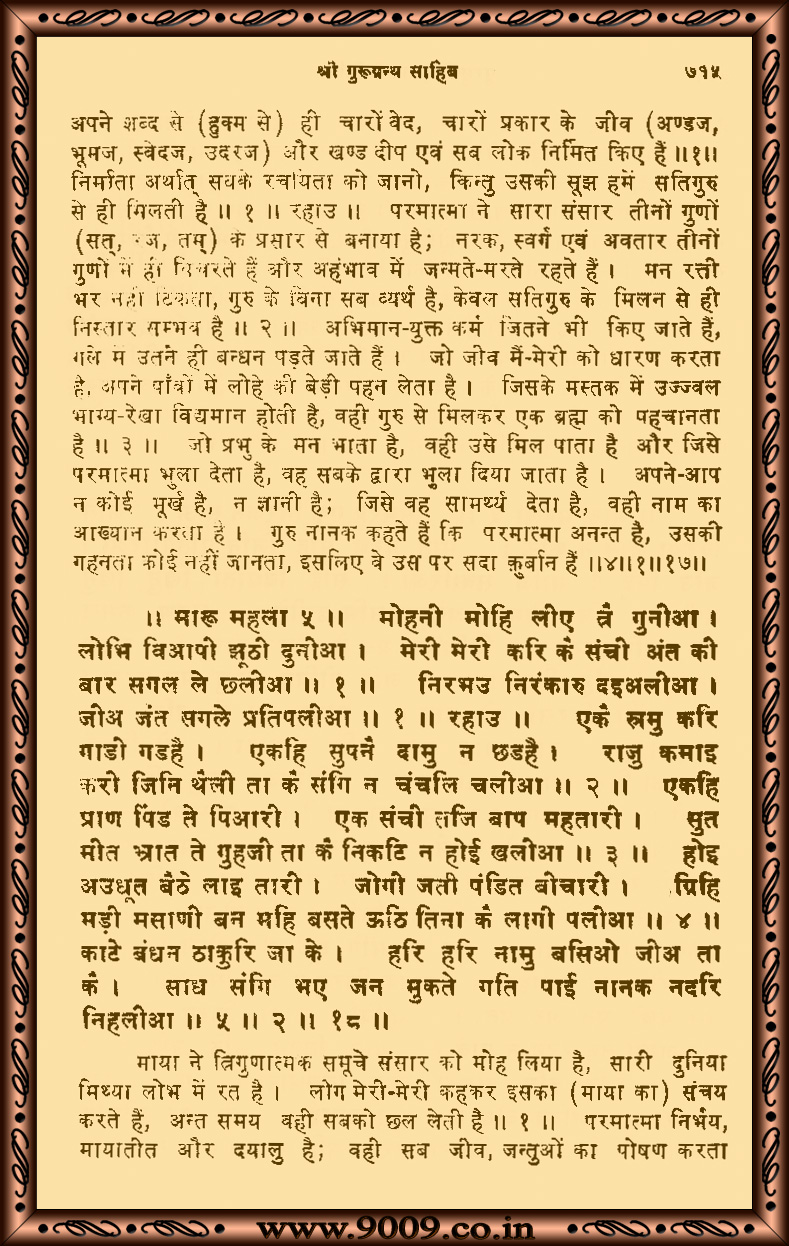 श्री गुरूग्रन्थ साहिब ७१५
अपने शब्द से (हुक्म से) ही चारों वेद, चारों प्रकार के जीव (अण्डज,
भूमज, स्वेदज, उदरज) और खण्ड दीप एवं सब लोक निर्मित किए हैं ॥१॥
निर्माता अर्थात् सबके रचयिता को जानो, किन्तु उसकी सूझ हमें सतिगुरु
से ही मिलती है ॥ १ ॥ रहाउ ॥ परमात्मा ने सारा संसार तीनों गुणों
(सत्, रज, तम्) के प्रसार से बनाया है; नरक, स्वर्ग एवं अवतार तीनों
गुणों में ही विचरते हैं और अहंभाव में जन्मते-मरते रहते हैं । मन रत्ती
भर नहीं टिकता, गुरु के बिना सब व्यर्थ है, केवल सतिगुरु के मिलन से ही
निस्तार सम्भव है ॥ २ ॥ अभिमान-युक्त कर्म जितने भी किए जाते हैं,
गले में उतने ही बन्धन पड़ते जाते हैं । जो जीव मैं-मेरी को धारण करता
है, अपने पाँवों में लोहे की बेड़ी पहन लेता है । जिसके मस्तक में उज्ज्वल
भाग्य-रेखा विद्यमान होती है, वही गुरु से मिलकर एक ब्रह्म को पहचानता
है ॥ ३ ॥ जो प्रभु के मन भाता है, वही उसे मिल पाता है और जिसे
परमात्मा भुला देता है, वह सबके द्वारा भुला दिया जाता है । अपने-आप
न कोई मूर्ख है, न ज्ञानी है; जिसे वह सामर्थ्य देता है, वही नाम का
आख्यान करता है । गुरु नानक कहते हैं कि परमात्मा अनन्त है, उसकी
गहनता कोई नहीं जानता, इसलिए वे उस पर सदा क़ुर्बान हैं ॥४॥१॥१७॥
॥ मारू महला ५ ॥ मोहनी मोहि लीए त्रै गुनीआ ।
लोभि विआपी झूठी दुनीआ । मेरी मेरी करि कै संची अंत की
बार सगल ले छलीआ ॥ १ ॥ निरभउ निरंकारु दइअलीआ ।
जीअ जंत सगले प्रतिपलीआ ॥ १ ॥ रहाउ ॥ एकै स्रमु करि
गाडी गडहै । एकहि सुपनै दामु न छडहै । राजु कमाइ
करी जिनि थैली ता कै संगि न चंचलि चलीआ ॥ २ ॥ एकहि
प्राण पिंड ते पिआरी । एक संची तजि बाप महतारी । सुत
मीत भ्रात ते गुहजी ता कै निकटि न होई खलीआ ॥ ३ ॥ होइ
अउधूत बैठे लाइ तारी । जोगी जती पंडित बीचारी । ग्रिहि
मड़ी मसाणी बन महि बसते ऊठि तिना कै लागी पलीआ ॥ ४ ॥
काटे बंधन ठाकुरि जा के । हरि हरि नामु बसिओ जीअ ता
कै । साध संगि भए जन मुकते गति पाई नानक नदरि
निहलीआ ॥ ५ ॥ २ ॥ १८ ॥
माया ने त्रिगुणात्मक समूचे संसार को मोह लिया है, सारी दुनिया
मिथ्या लोभ में रत है । लोग मेरी-मेरी कहकर इसका (माया का) संचय
करते हैं, अन्त समय वही सबको छल लेती है ॥ १ ॥ परमात्मा निर्भय,
मायातीत और दयालु है; वही सब जीव, जन्तुओं का पोषण करता
www.9009.co.in